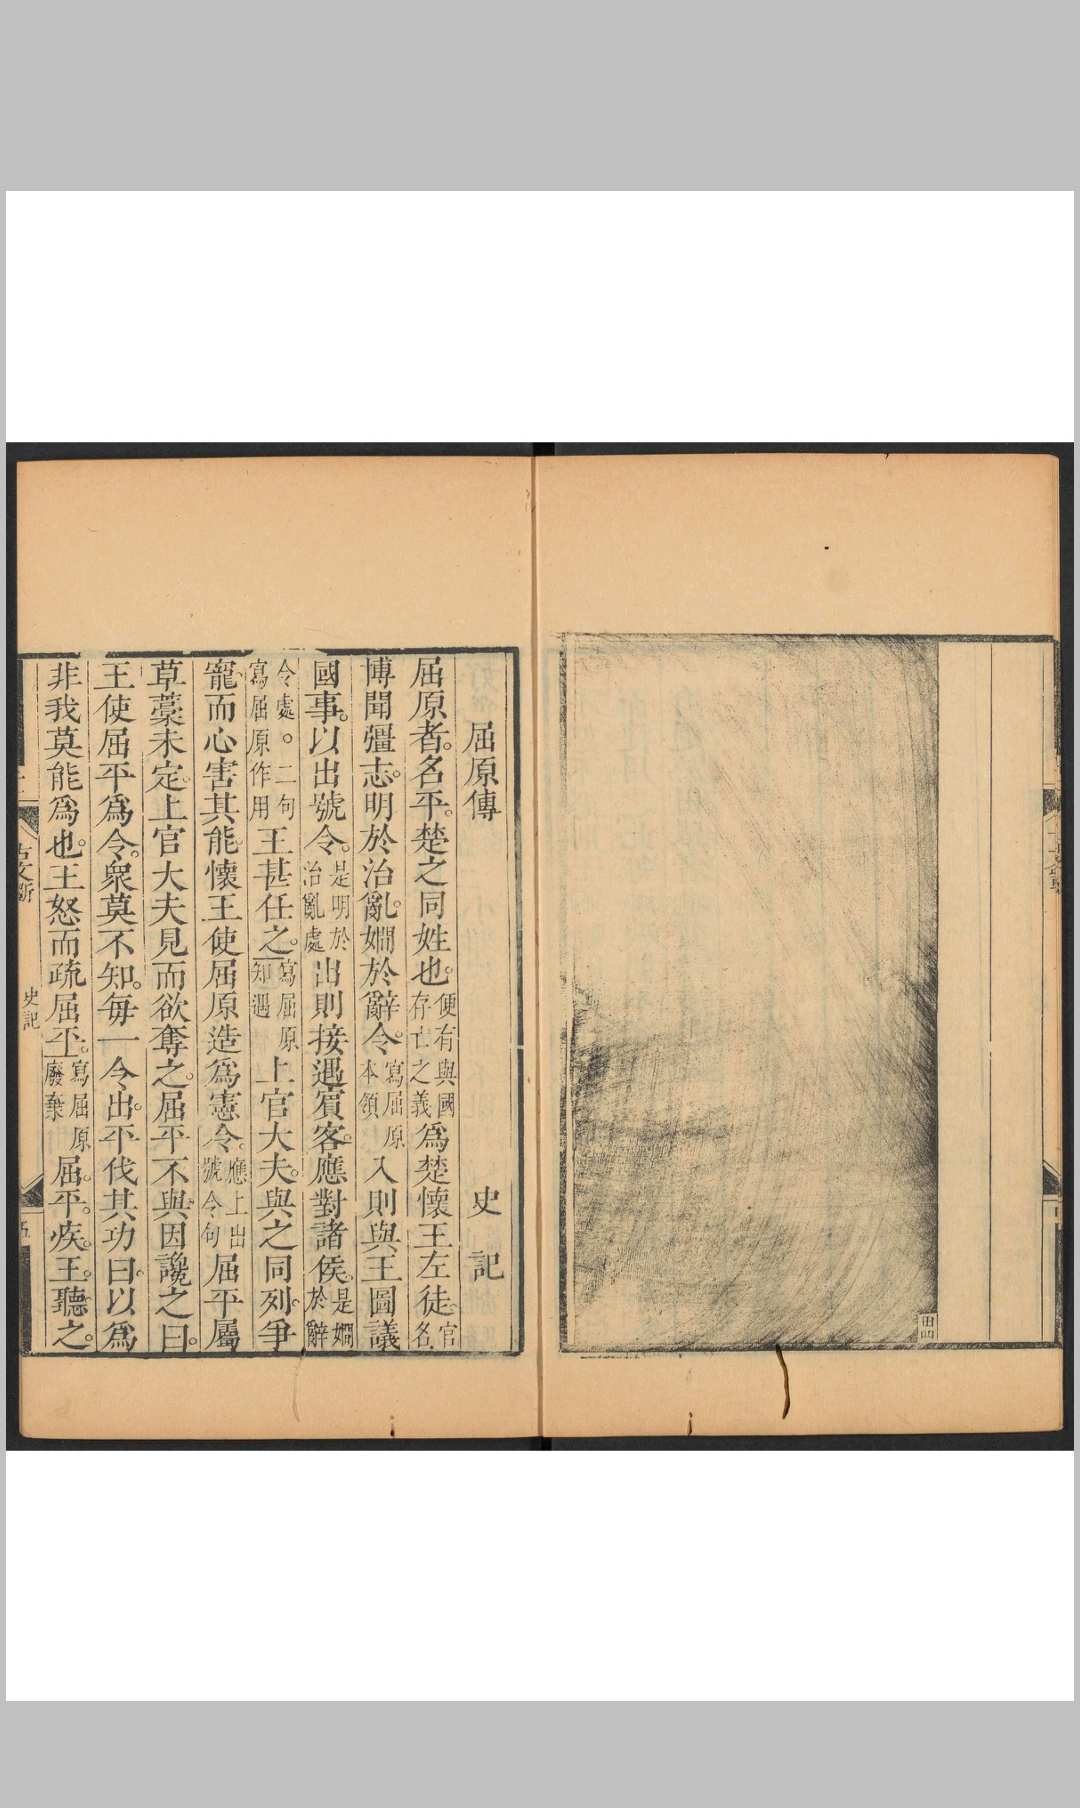 屈原傳 史記
屈原者。名平。楚之同姓也。便有與國存亡之義爲楚懷王左徒。官名
博聞彊志。明於治亂。嫺於辭令。寫屈原本領入則與王圖議
國事。以出號令。是明於治亂處出則接遇賓客。應對諸侯。是嫺於辭
令處。二句寫屈原作用王甚任之。寫屈原知遇上官大夫。與之同列。爭
寵而心害其能。懷王使屈原造爲憲令。應上出號令句屈平屬
草藁未定。上官大夫見而欲奪之。屈平不與。因讒之曰。
王使屈平爲令。衆莫不知。每一令出。平伐其功。曰。以爲
非我莫能爲也。王怒而疏屈平。寫屈原廢棄屈平疾。王聽之。
史記
五